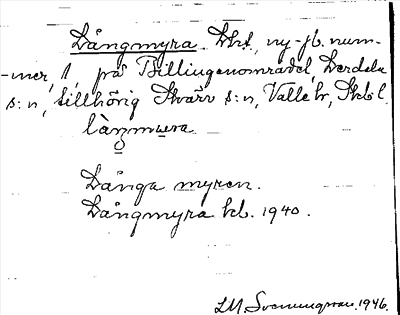 Långmyra. Lht., ny-jb. num-
-mer, 1, på Billingenområdet, Varola
s:n, tillhörig Skärv s:n, Valle hd, Skbl.
làŋmura
Långa myren.
Långmyra kl. 1940.
LM. Svenungsson. 1946.